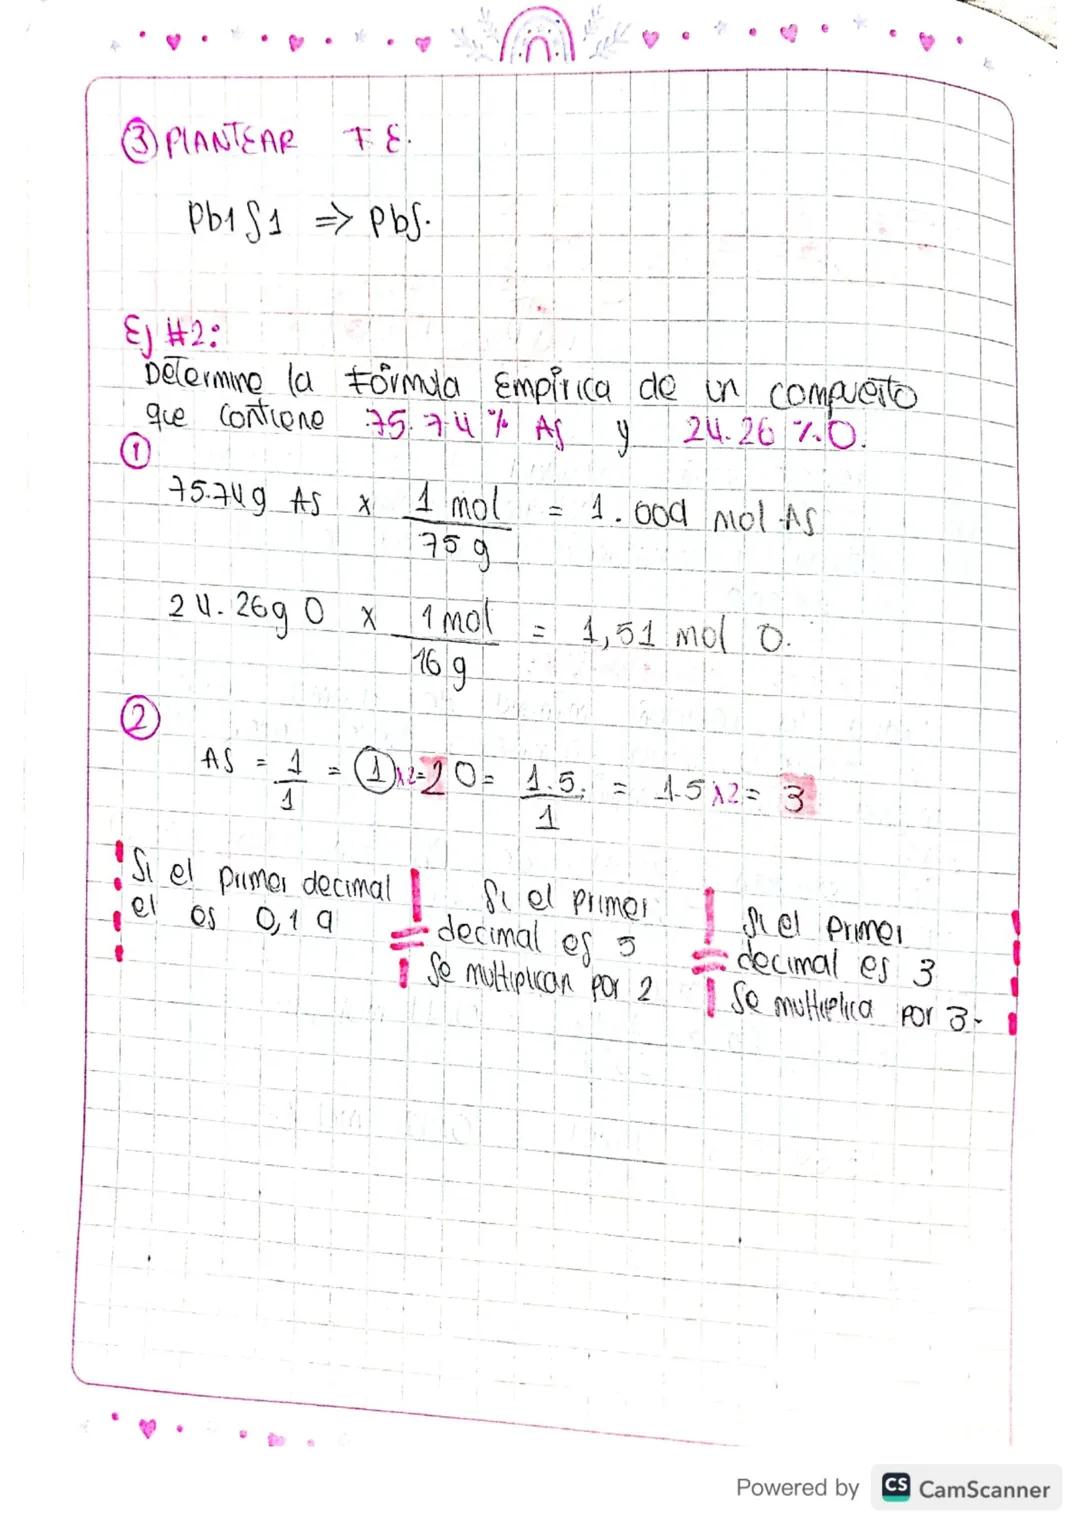 ③ PLANTEAR F.E.
Pb1S1 => PbS.
Ej #2:
Determine la Fórmula Empírica de un compuesto
que contiene 75.74% As y 24.26%O.
①
75.74g As x 1 mol = 1.009 mol As
75 g
24.26g O x 1 mol = 1,51 mol O.
16 g
②
AS = 1 = ① x2=2 O= 1.5. = 1.5 x2 = 3
1 1
Si el primer decimal
el es 0,1 9
Si el primer
decimal es 5
Se multiplican por 2
Si el primer
decimal es 3
Se multiplica por 3-
Powered by CS CamScanner